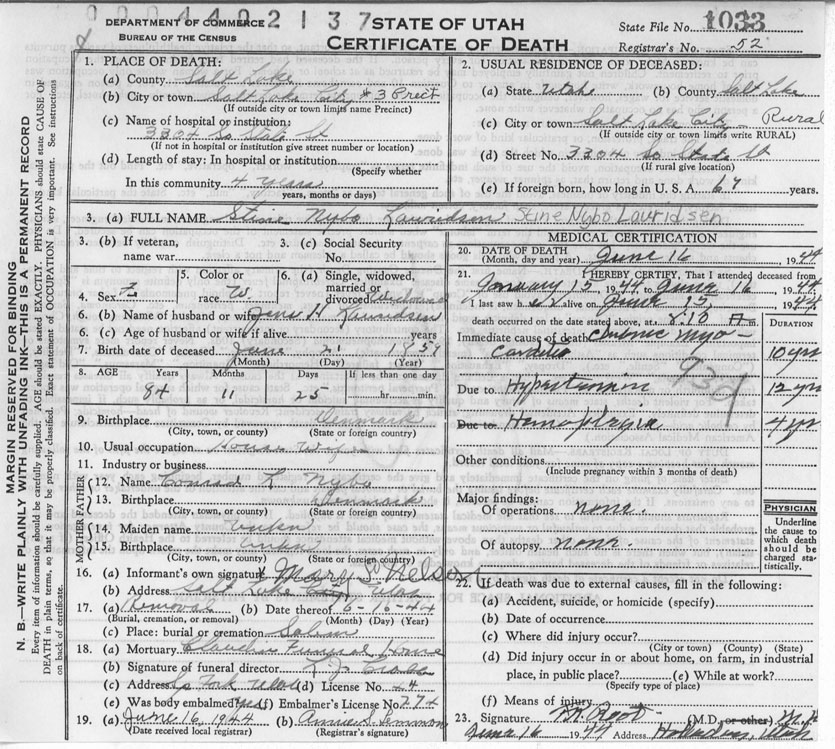 0004402137
DEPARTMENT OF COMMERCE
BUREAU OF THE CENSUS
STATE OF UTAH
CERTIFICATE OF DEATH
State File No. 1033
Registrar's No. 52
MARGIN RESERVED FOR BINDING
N. B.—WRITE PLAINLY WITH UNFADING INK—THIS IS A PERMANENT RECORD
Every item of information should be carefully supplied. AGE should be stated EXACTLY. PHYSICIANS should state CAUSE OF
DEATH in plain terms, so that it may be properly classified. Exact statement of OCCUPATION is very important. See instructions
on back of certificate.
1. PLACE OF DEATH:
(a) County Salt Lake
(b) City or town Salt Lake City #3 Prect
(If outside city or town limits name Precinct)
(c) Name of hospital or institution:
3304 So State St
(If not in hospital or institution give street number or location)
(d) Length of stay: In hospital or institution
(Specify whether
In this community 4 years
years, months or days)
2. USUAL RESIDENCE OF DECEASED:
(a) State Utah (b) County Salt Lake
(c) City or town Salt Lake City - Rural
(If outside city or town limits write RURAL)
(d) Street No. 3304 So State St
(If rural give location)
(e) If foreign born, how long in U. S. A. 67 years.
3. (a) FULL NAME Stine Nybo Lauridsen Stine Nybo Lauridsen
3. (b) If veteran,
name war
3. (c) Social Security
No.
4. Sex F
5. Color or
race W.
6. (a) Single, widowed,
married or
divorced Widowed
6. (b) Name of husband or wife Jens H Lauridsen
6. (c) Age of husband or wife if alive years
7. Birth date of deceased June 21 1859
(Month) (Day) (Year)
8. AGE Years Months Days If less than one day
84 11 25 hr. min.
9. Birthplace Denmark
(City, town, or county) (State or foreign country)
10. Usual occupation House Wife
11. Industry or business
FATHER
12. Name Conrad L Nybo
13. Birthplace Denmark
(City, town, or county) (State or foreign country)
MOTHER
14. Maiden name unkn
15. Birthplace unkn
(City, town, or county) (State or foreign country)
16. (a) Informant's own signature Mary S. Nelson
(b) Address Salt Lake City Utah
17. (a) Removal (b) Date thereof 6-16-44
(Burial, cremation, or removal) (Month) (Day) (Year)
(c) Place: burial or cremation Salem
18. (a) Mortuary Claudin Funeral Home
(b) Signature of funeral director
(c) Address Sp Fork Utah (d) License No. 24
(e) Was body embalmed? yes (f) Embalmer's License No. 274
19. (a) June 16, 1944 (b) Annie S. Lemmon
(Date received local registrar) (Registrar's signature)
MEDICAL CERTIFICATION
20. DATE OF DEATH
(Month, day and year) June 16 1944
21. I HEREBY CERTIFY, That I attended deceased from
January 15, 1944, to June 16 1944
I last saw her alive on June 15 1944
death occurred on the date stated above, at 8:10 A m.
DURATION
Immediate cause of death Chronic Myo-
Carditis 10 yrs
93d
Due to Hypertension 12 yrs
Due to Hemoplegia 4 yr
Other conditions
(Include pregnancy within 3 months of death)
Major findings:
Of operations none.
Of autopsy none.
PHYSICIAN
Underline
the cause to
which death
should be
charged sta-
tistically.
22. If death was due to external causes, fill in the following:
(a) Accident, suicide, or homicide (specify)
(b) Date of occurrence
(c) Where did injury occur?
(City or town) (County) (State)
(d) Did injury occur in or about home, on farm, in industrial
place, in public place? (e) While at work?
(Specify type of place)
(f) Means of injury
23. Signature Root (M.D. or other) M.D.
June 16 1944 Address Holladay, Utah